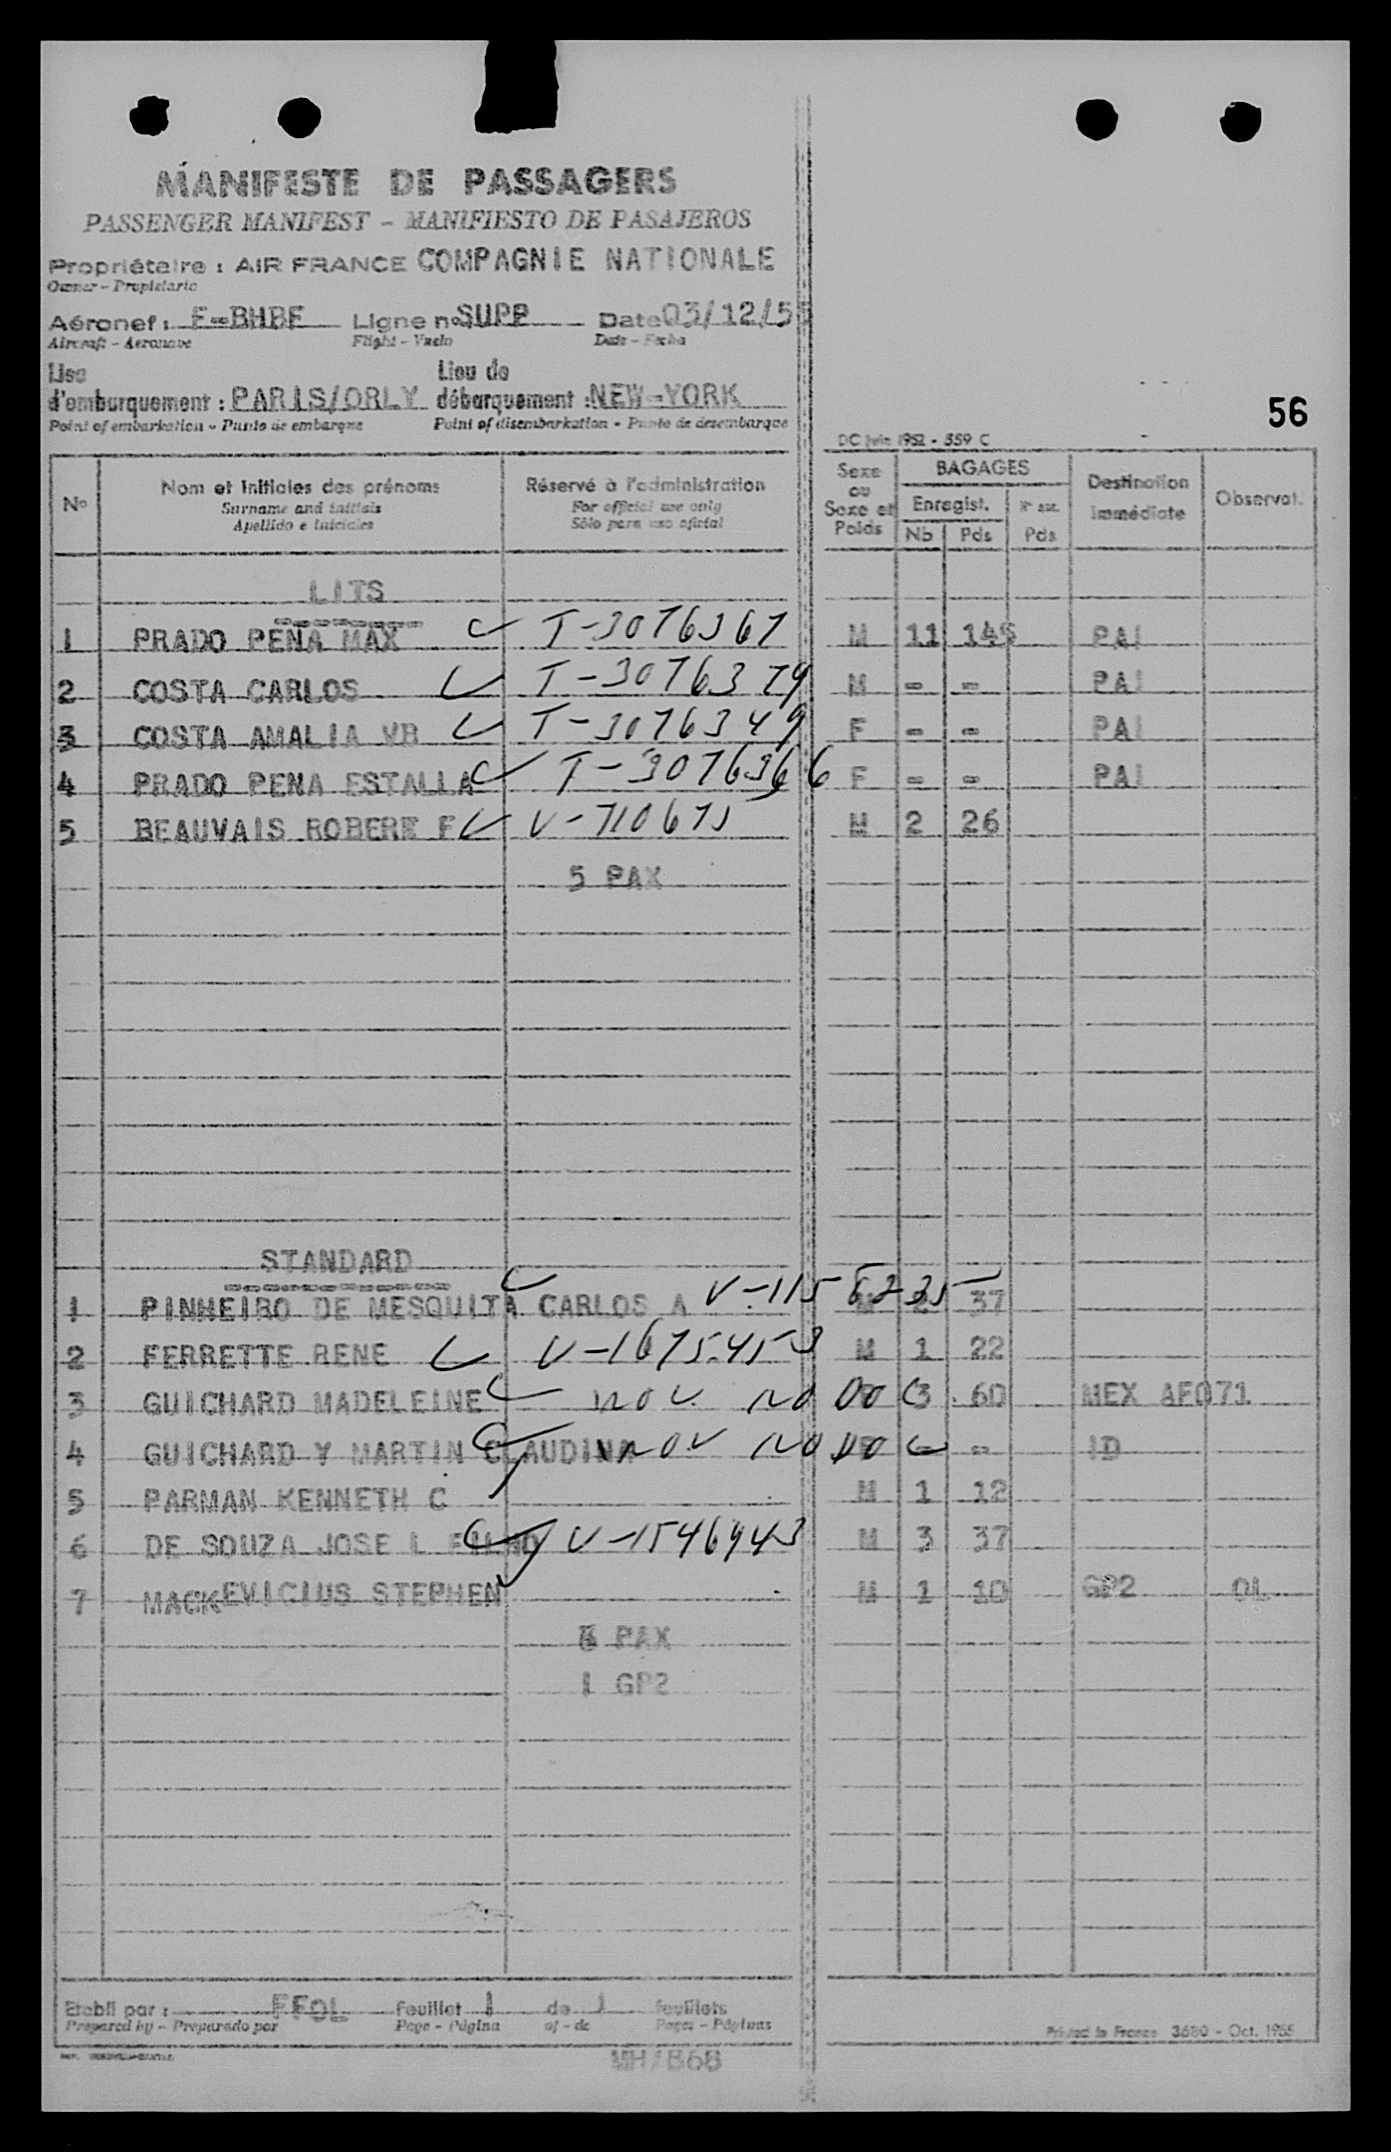 MANIFESTE DE PASSAGERS
PASSENGER MANIFEST - MANIFIESTO DE PASAJEROS
Propriétaire : AIR FRANCE COMPAGNIE NATIONALE
Owner - Propietario
Aéronef : F-BHBF Ligne no SUPP Date 03/12/55
Aircraft - Aeronave Flight - Vuelo Date - Fecha
Lieu d'embarquement : PARIS/ORLY Lieu de débarquement : NEW-YORK
Point of embarkation - Punto de embarque Point of disembarkation - Punto de desembarque
56
DC juin 1952 - 559 C
No Nom et initiales des prénoms Réservé à l'administration Sexe ou Sexe et Poids BAGAGES Destination immédiate Observat.
Surname and initials For official use only Enregist.
Apellido e iniciales Sólo para uso oficial Nb Pds Pds
LITS
1 PRADO PENA MAX T-3076367 M 11 145 PAI
2 COSTA CARLOS T-3076379 M - - PAI
3 COSTA AMALIA VB T-3076349 F - - PAI
4 PRADO PENA ESTALLA T-3076366 F - - PAI
5 BEAUVAIS ROBERT F V-710675 M 2 26
5 PAX
STANDARD
1 PINHEIRO DE MESQUITA CARLOS A V-1156235 M 2 37
2 FERRETTE RENE V-1675453 M 1 22
3 GUICHARD MADELEINE nov. no Doc 3 60 MEX AF071
4 GUICHARD Y MARTIN CLAUDINA nov no Doc - - ID
5 PARMAN KENNETH C M 1 12
6 DE SOUZA JOSE L FILHO V-1546943 M 3 37
7 MACKEVICIUS STEPHEN M 1 10 GP2 OL
6 PAX
1 GP2
Etabli par : FFOL Feuillet 1 de 1 feuillets
Prepared by - Preparado por Page - Página of - de Pages - Páginas
Printed in France 3680 - Oct. 1955
MH/B6B